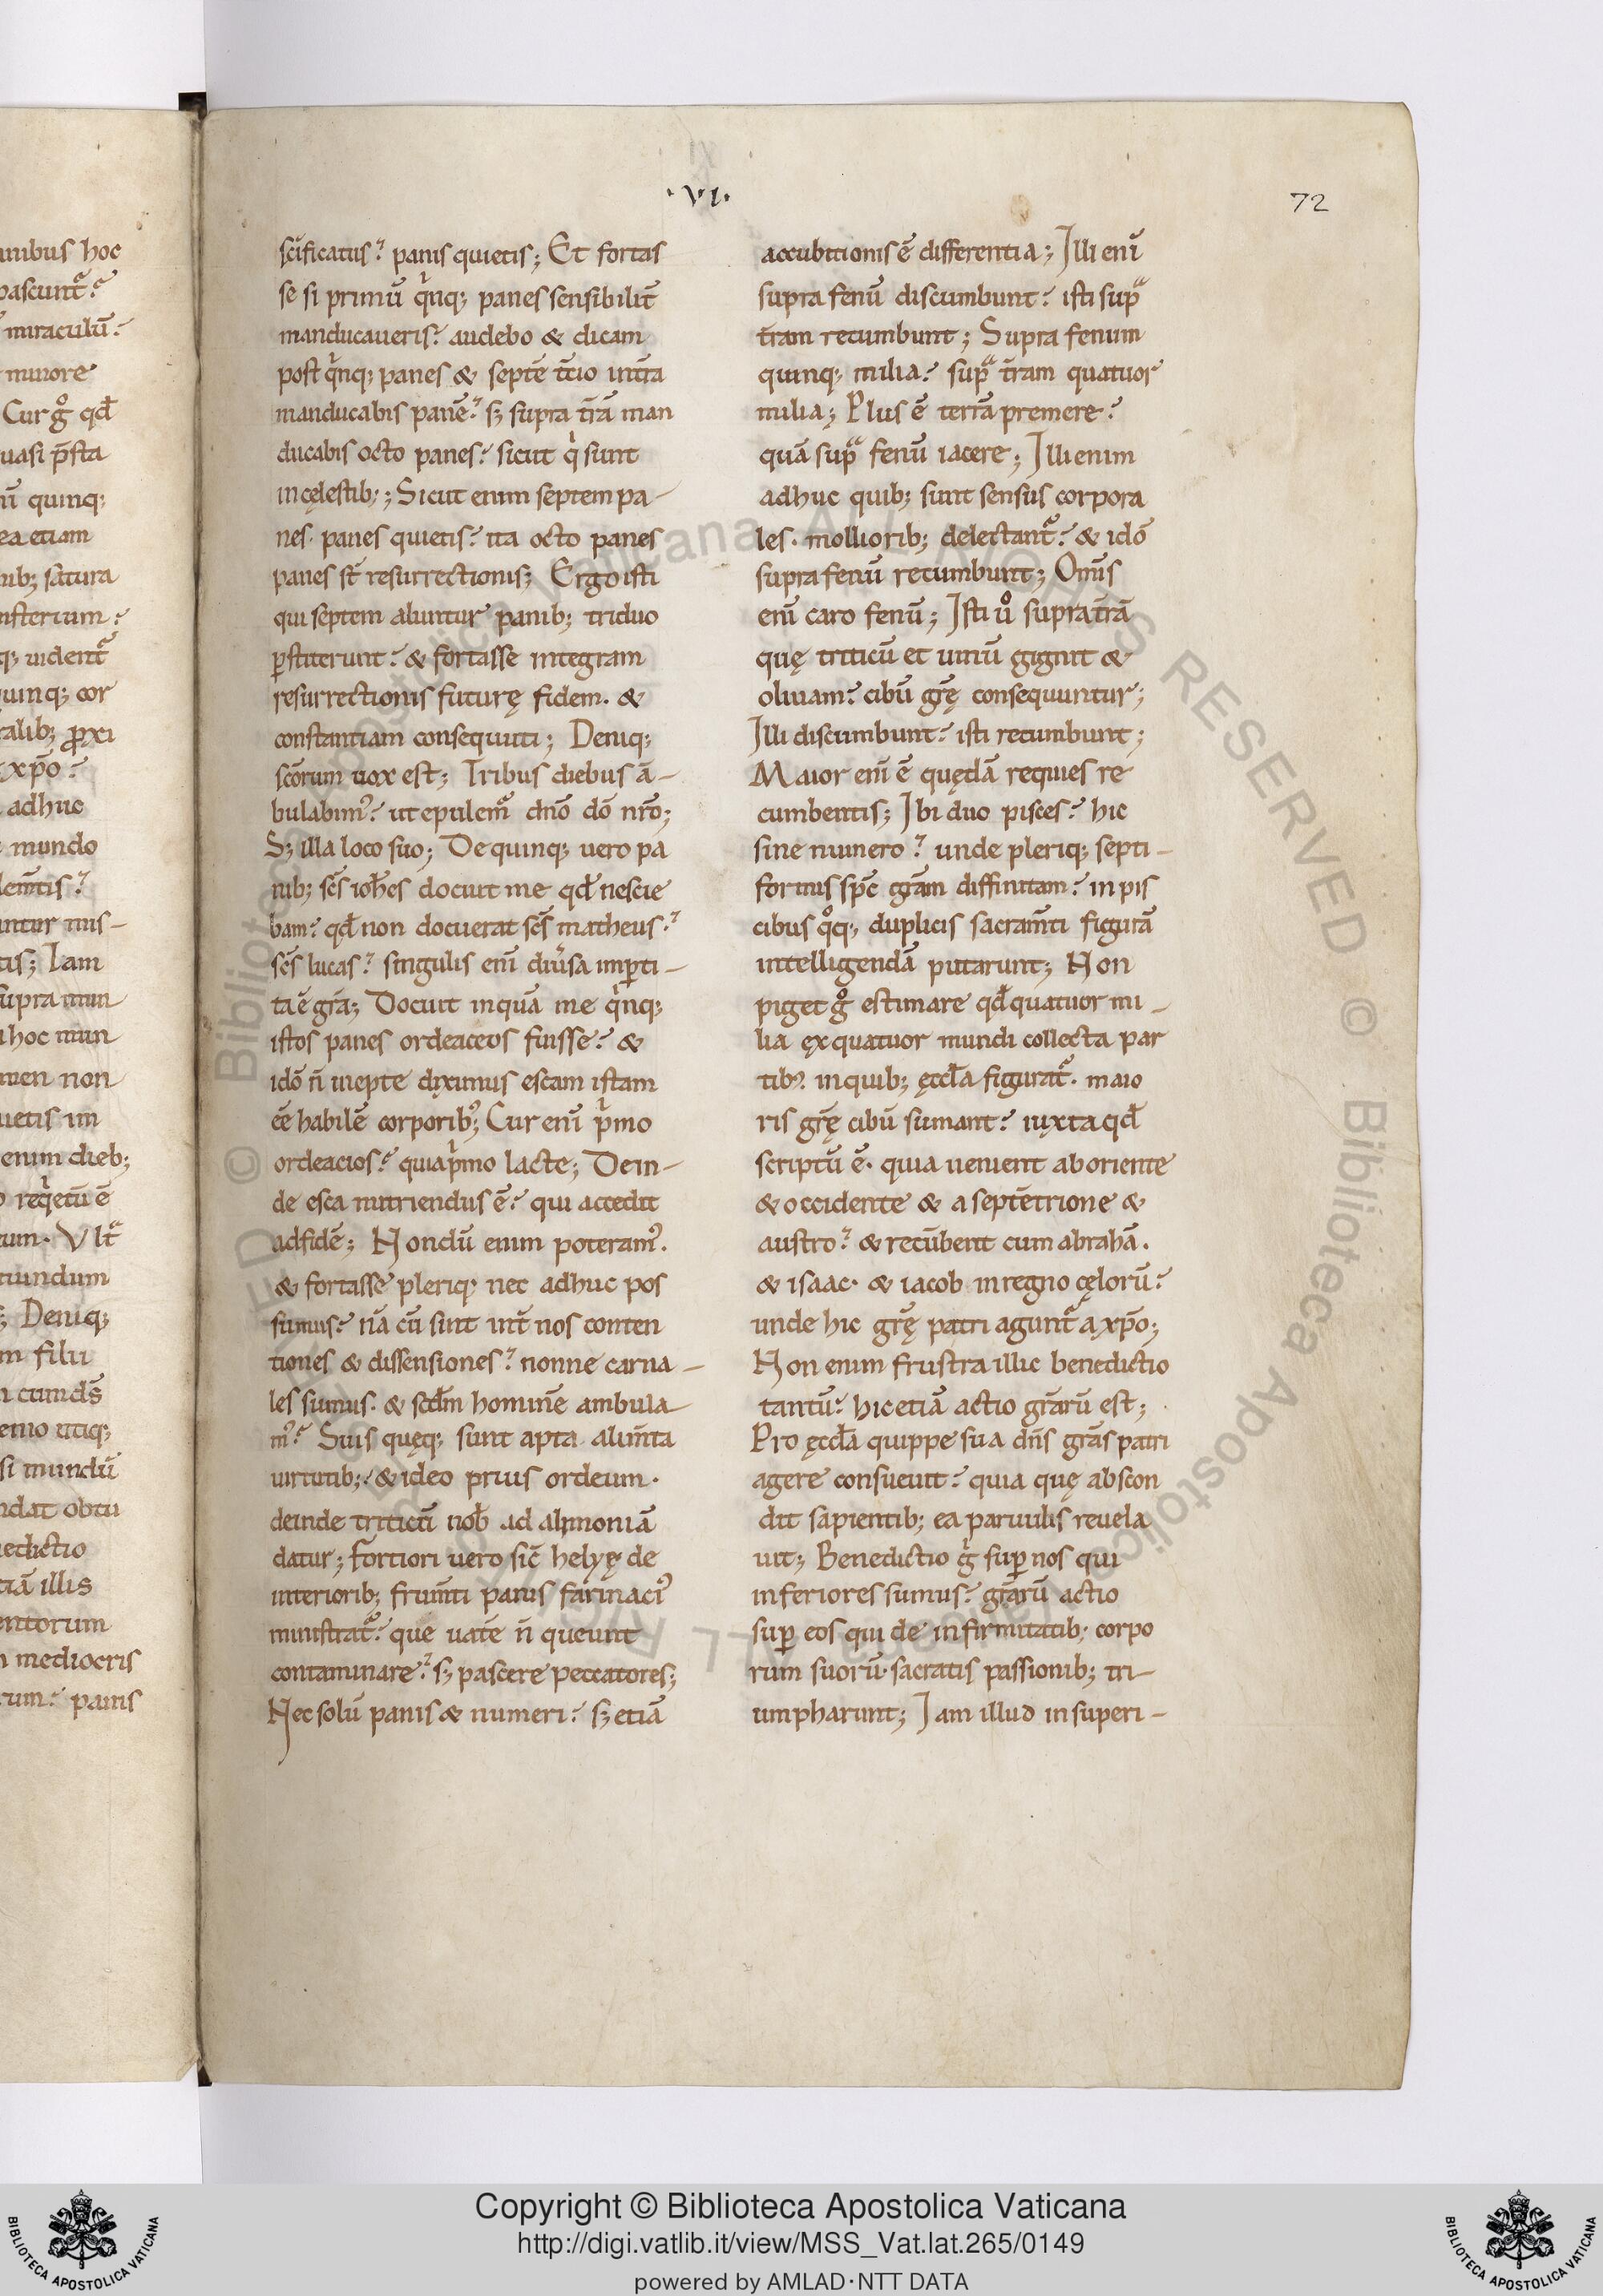 ·VI·
72
unibus hoc
pascunt᷑?
miraculū?
minore
Cur gͦ qđ
uasi p̄sta
quinq;
ea etiam
nib; satura
misterium?
q; uident᷑
quinq; cor
ralib; ꝓxi
xp̄o?
adhuc
mundo
lem̄tis?
untur mis-
tis; Iam
supra mun
hoc mun
men non
uietis im
enim dieb;
reqͥetū ē
um. Vlt᷑
mundum
; Deniq;
m filii
cum ds̄
emo utiq;
si mundū
ndat obtu
edictio
tiā illis
entorum
mediocris
rum? panis
sc̄ificatus? panis quietis; Et fortas
se si primū qͥnq; panes sensibilit̄
manducaueris? audebo & dicam
post qͥnq; panes & septē t̄cio int̄ra
manducabis panē? s; supra t̄rā man
ducabis octo panes? sicut qͥ sunt
in cęlestib;; Sicut enim septem pa-
nes. panes quietis? ita octo panes
panes st̄ resurrectionis; Ergo isti
qui septem aluntur panib; triduo
ꝑstiterunt? & fortasse integram
resurrectionis futurę fidem. &
constantiam consequuti; Deniq;
sc̄orum uox est; Tribus diebus ā-
bulabim᷒? ut epulem᷑ dn̄o dō nr̄o;
S; illa loco suo; De quinq; uero pa
nib; sc̄s ioh̄es docuit me qđ nescie
bam? qđ non docuerat sc̄s matheus?
sc̄s lucas? singulis enī diuͥsa imꝑti-
ta ē gr̄a; Docuit inquā me qͥnq;
istos panes ordeaceos fuisse? &
idō n̄ inepte diximus escam istam
ēē habilē corporib᷒; Cur enī pͥmo
ordeacios? quia pͥmo lacte; Dein-
de esca nutriendus ē? qui accedit
ad fidē; Nondū enim poteram᷒.
& fortasse pleriq; nec adhuc pos
sumus? nā cū sint int̄ nos conten
tiones & dissensiones? nonne carna-
les sumus. & scđm hominē ambula
m᷒? Suis quęq; sunt apta alim̄ta
uirtutib;? & ideo prius ordeum.
deinde triticū nob̄ ad alimoniā
datur; fortiori uero sic̄ helyę de
interiorib; frum̄ti panis farinaci᷒
ministrat᷑? quē uatē n̄ queunt
contaminare? s; pascere peccatores;
Nec solū panis & numeri? s; etiā
accubitionis ē differentia; Illi enī
supra fenū discumbunt? isti supᷓ
t̄ram recumbunt; Supra fenum
quinq; milia? supᷓ t̄ram quatuor
milia; Plus ē terrā premere?
quā supᷓ fenū iacere; Illi enim
adhuc quib; sunt sensus corpora
les. molliorib; delectant᷑? & idō
supra fenū recumbunt; Om̄s
enī caro fenū; Isti uͦ supra t̄rā
quę triticū et uinū gignit &
oliuam? cibū gr̄ę consequuntur;
Illi discumbunt? isti recumbunt;
Maior enī ē quędā requies re
cumbentis; Ibi duo pisces? hic
sine numero? unde pleriq; septi-
formis sp̄c gr̄am diffinitam? in pis
cibus qͦq; duplicis sacram̄ti figurā
intelligendā putarunt; Non
piget gͦ estimare qđ quatuor mi-
lia ex quatuor mundi collecta par
tib᷒. in quib; ęccl̄a figurat᷑. maio
ris gr̄ę cibū sumant? iuxta qđ
scriptū ē. quia uenient ab oriente
& occidente & a septētrione &
austro? & recūbent cum abrahā.
& isaac. & iacob in regno cęlorū?
unde hic gr̄ę patri agunt᷑ a xp̄o;
Non enim frustra illic benedictio
tantū? hic etiā actio gr̄arū est;
Pro ęccl̄a quippe sua dn̄s gr̄as patri
agere consueuit? quia quę abscon
dit sapientib; ea paruulis reuela
uit; Benedictio gͥ suꝑ nos qui
inferiores sumus? gr̄arū actio
suꝑ eos qui de infirmitatib; corpo
rum suorū. sacratis passionib; tri-
umpharunt; Iam illud in superi-
Copyright © Biblioteca Apostolica Vaticana
http://digi.vatlib.it/view/MSS_Vat.lat.265/0149
powered by AMLAD·NTT DATA